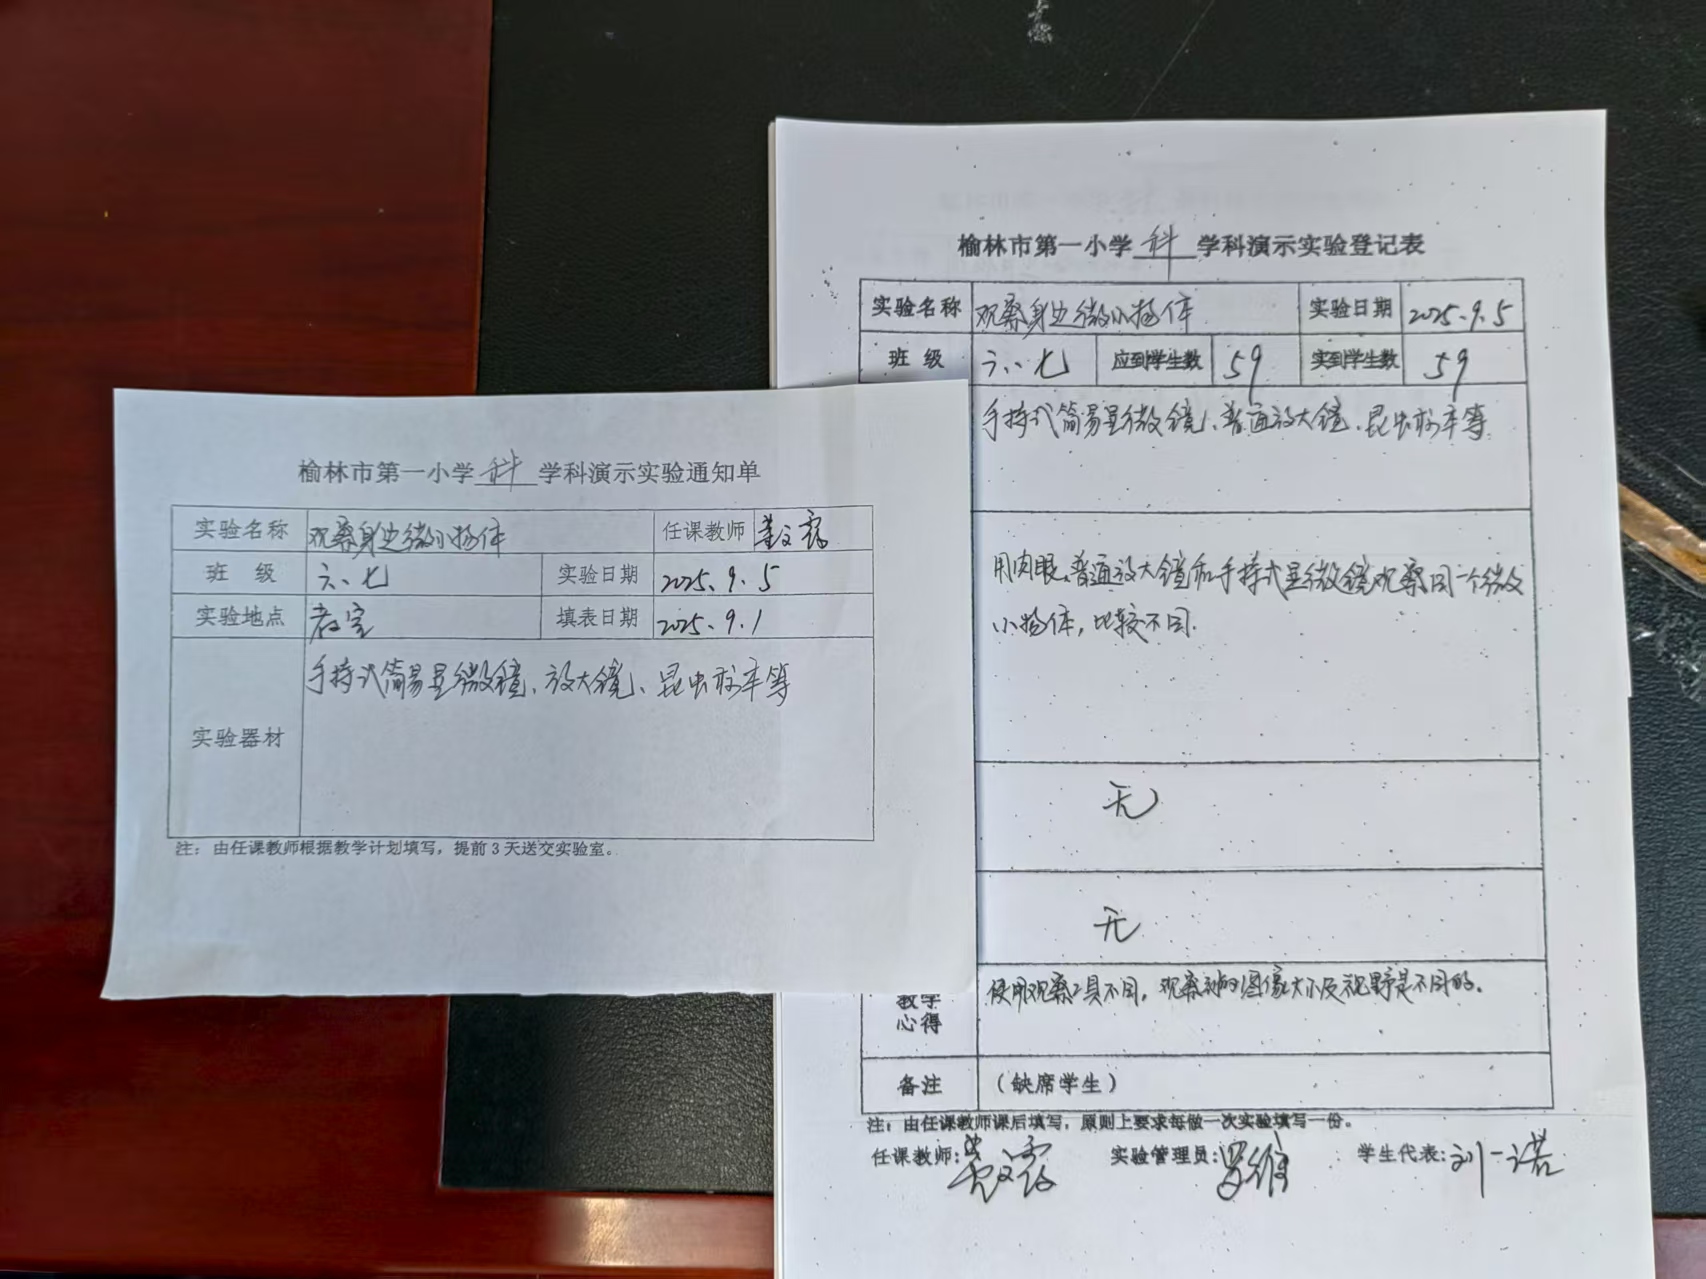 榆林市第一小学 科 学科演示实验通知单
实验名称 观察身边微小物体 任课教师
班 级 六、七 实验日期 2025.9.5
实验地点 教室 填表日期 2025.9.1
实验器材 手持式简易显微镜、放大镜、昆虫标本等
注：由任课教师根据教学计划填写，提前3天送交实验室。
榆林市第一小学 科 学科演示实验登记表
实验名称 观察身边微小物体 实验日期 2025.9.5
班 级 六、七 应到学生数 59 实到学生数 59
手持式简易显微镜、普通放大镜、昆虫标本等
用肉眼、普通放大镜和手持式显微镜观察同一个微
小物体，比较不同.
无
无
教学
心得
使用观察工具不同，观察到的图像大小及视野是不同的.
备注 （缺席学生）
注：由任课教师课后填写，原则上要求每做一次实验填写一份。
任课教师: 实验管理员:罗维 学生代表:刘一诺